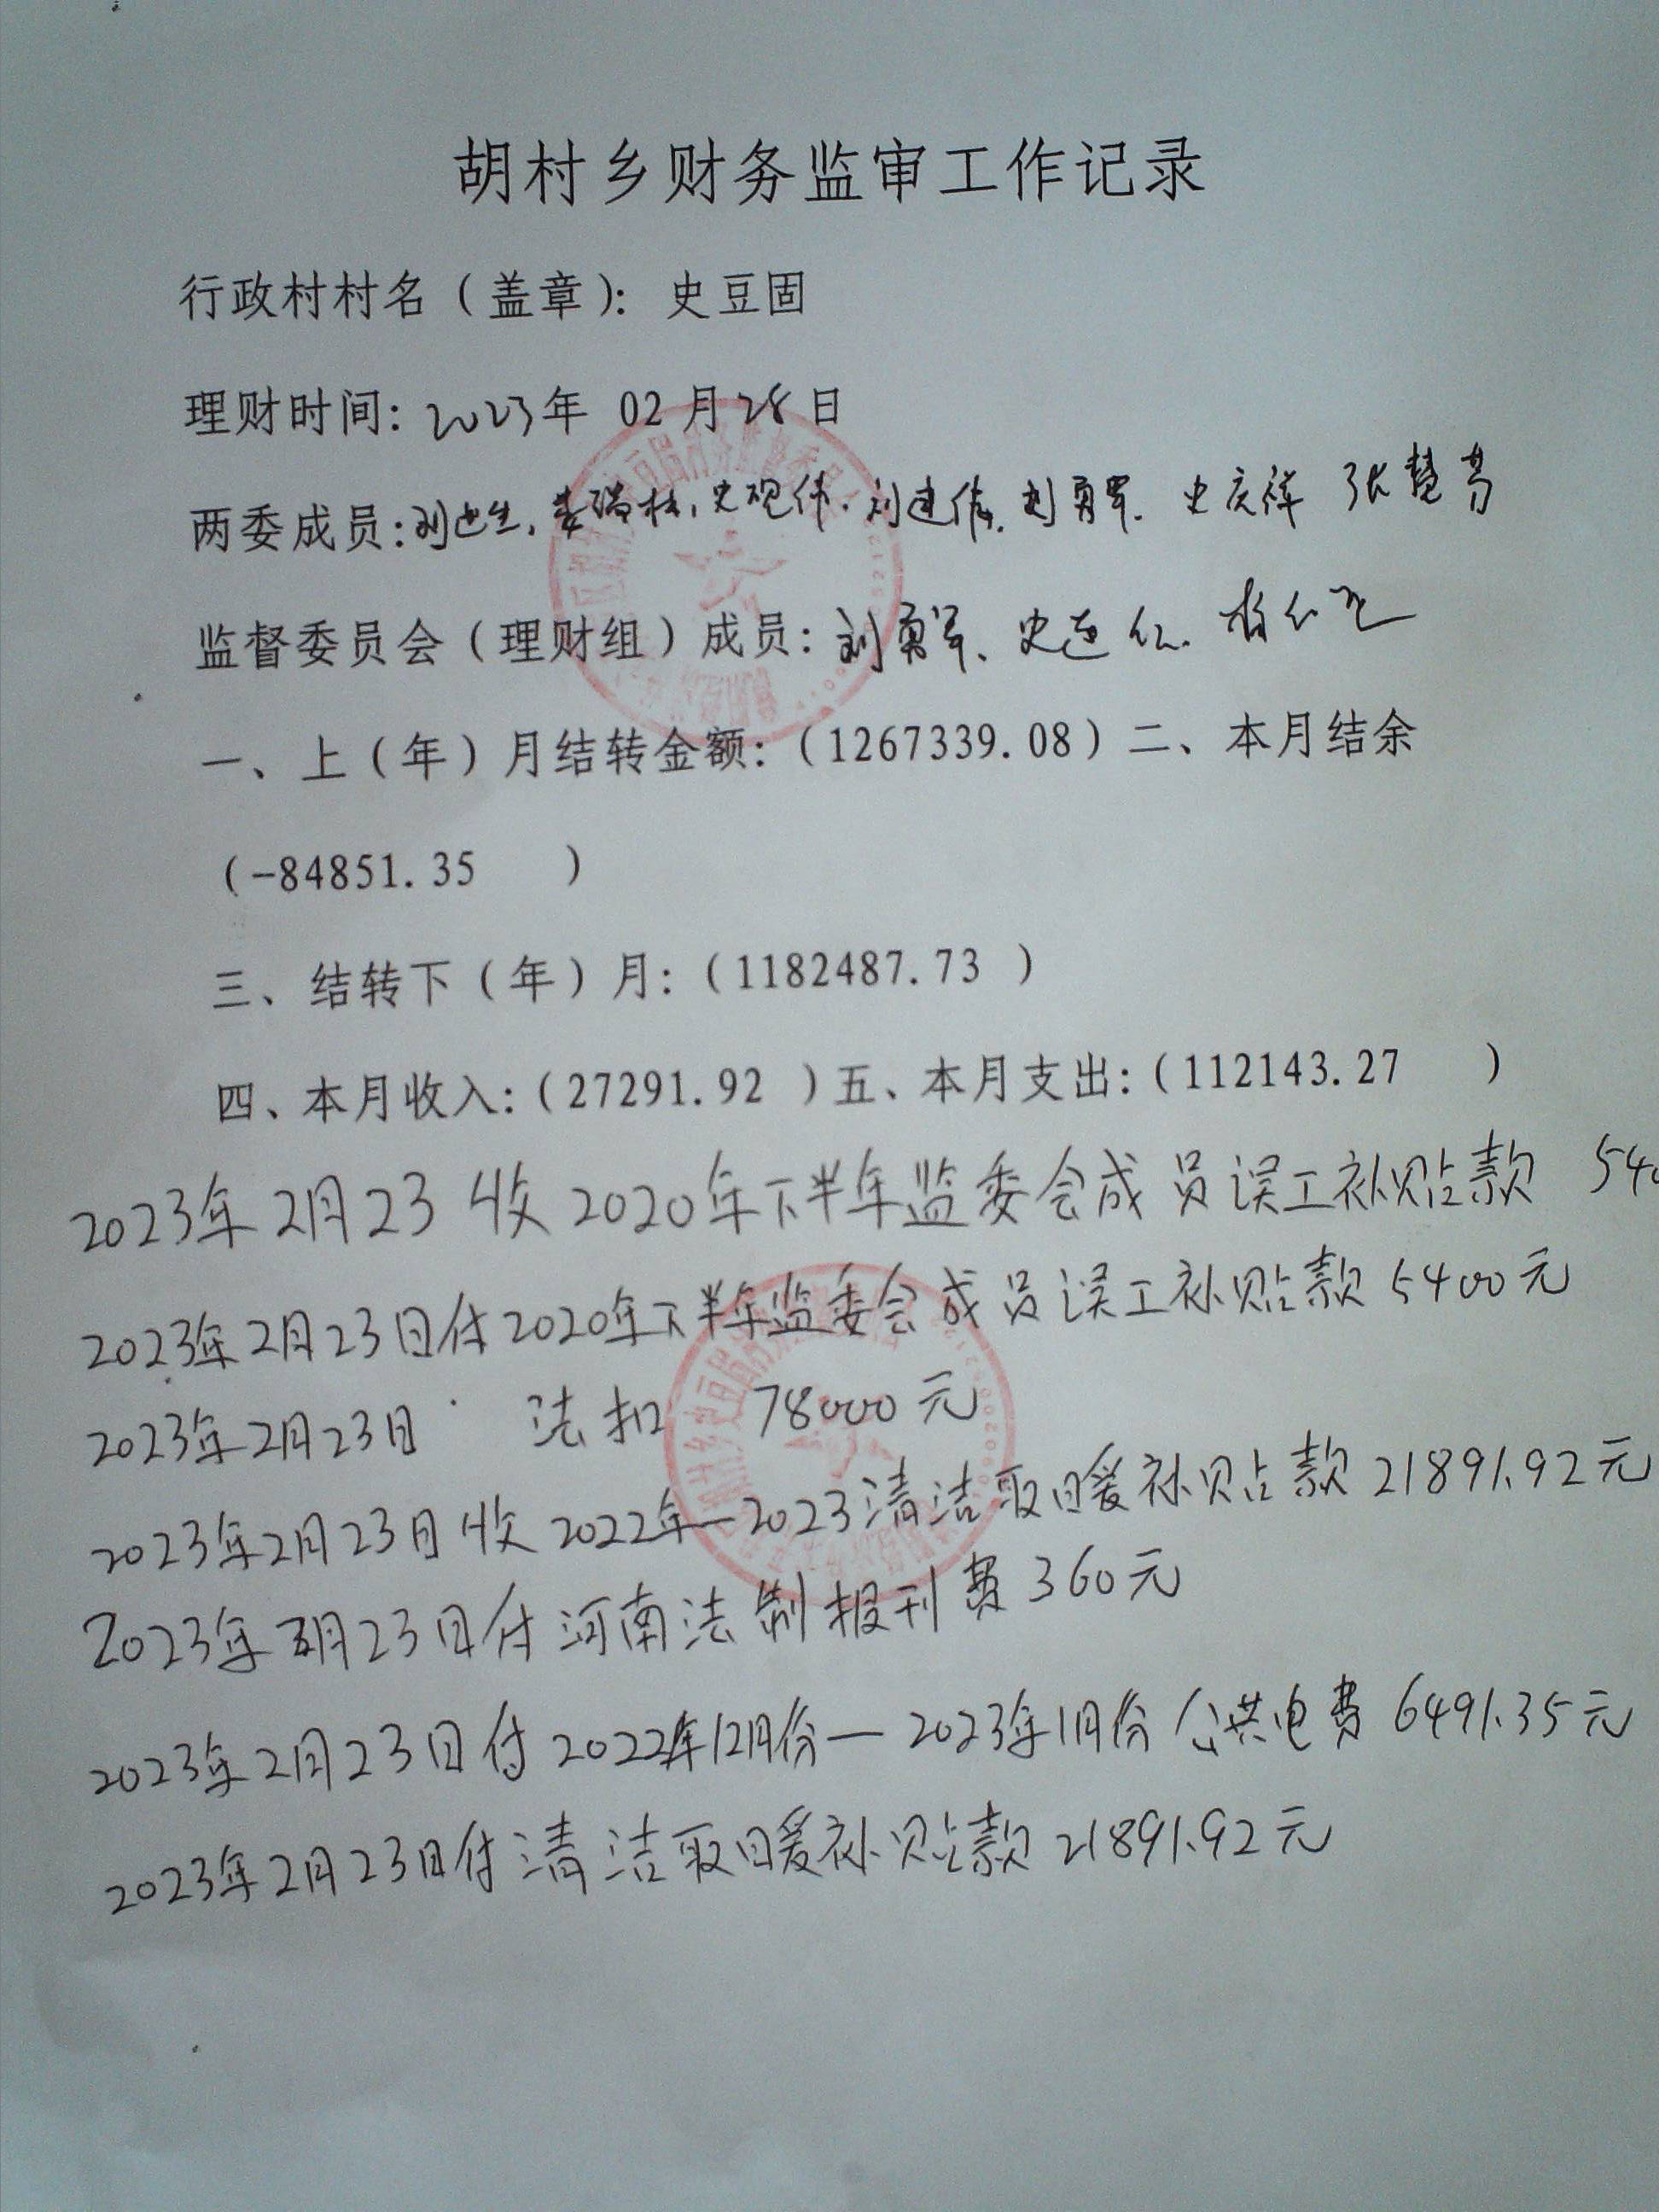 胡村乡财务监审工作记录
行政村村名（盖章）：史豆固
理财时间：2023年 02月28日
两委成员：刘 史砚伟、刘建伟、刘勇军、史庆祥 张慧芳
监督委员会（理财组）成员：刘勇军、史连
一、上（年）月结转金额：（1267339.08）二、本月结余
（-84851.35 ）
三、结转下（年）月：（1182487.73 ）
四、本月收入：（27291.92 ）五、本月支出：（112143.27 ）
2023年2月23 收2020年下半年监委会成员误工补贴款 540
2023年2月23日付2020年下半年监委会成员误工补贴款5400元
2023年2月23日 法扣 78000元
2023年2月23日收2022年—2023清洁取暖补贴款21891.92元
2023年2月23日付河南法制报刊费360元
2023年2月23日付2022年12月份—2023年1月份公共电费6491.35元
2023年2月23日付清洁取暖补贴款21891.92元